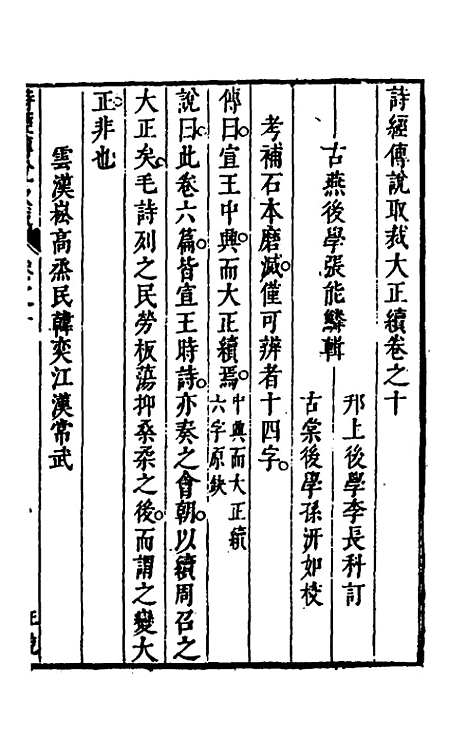 詩經傳說取裁大正續卷之十
古燕後學張能鱗輯
邘上後學李長科訂
古棠後學孫汧如校
考補石本磨滅僅可辨者十四字。
傳曰。宣王中興而大正續焉。中興而大正續六字原缺
說曰。此卷六篇。皆宣王時詩。亦奏之會朝。以續周召之
大正矣。毛詩列之民勞板蕩抑桑柔之後。而謂之變大
正。非也
雲漢崧高烝民韓奕江漢常武